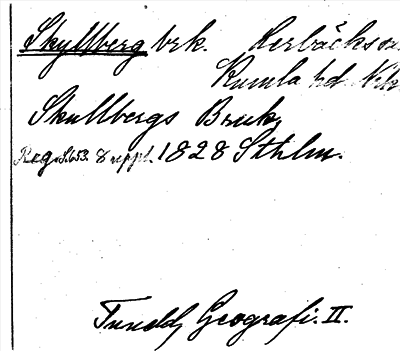 Skyllberg brk. Lerbäcks s
Kumla hd.
Skullbergs Bruk,
Reg. S. 653. 8 uppl. 1828 Sthlm.
Tuneld, Geografi. II.